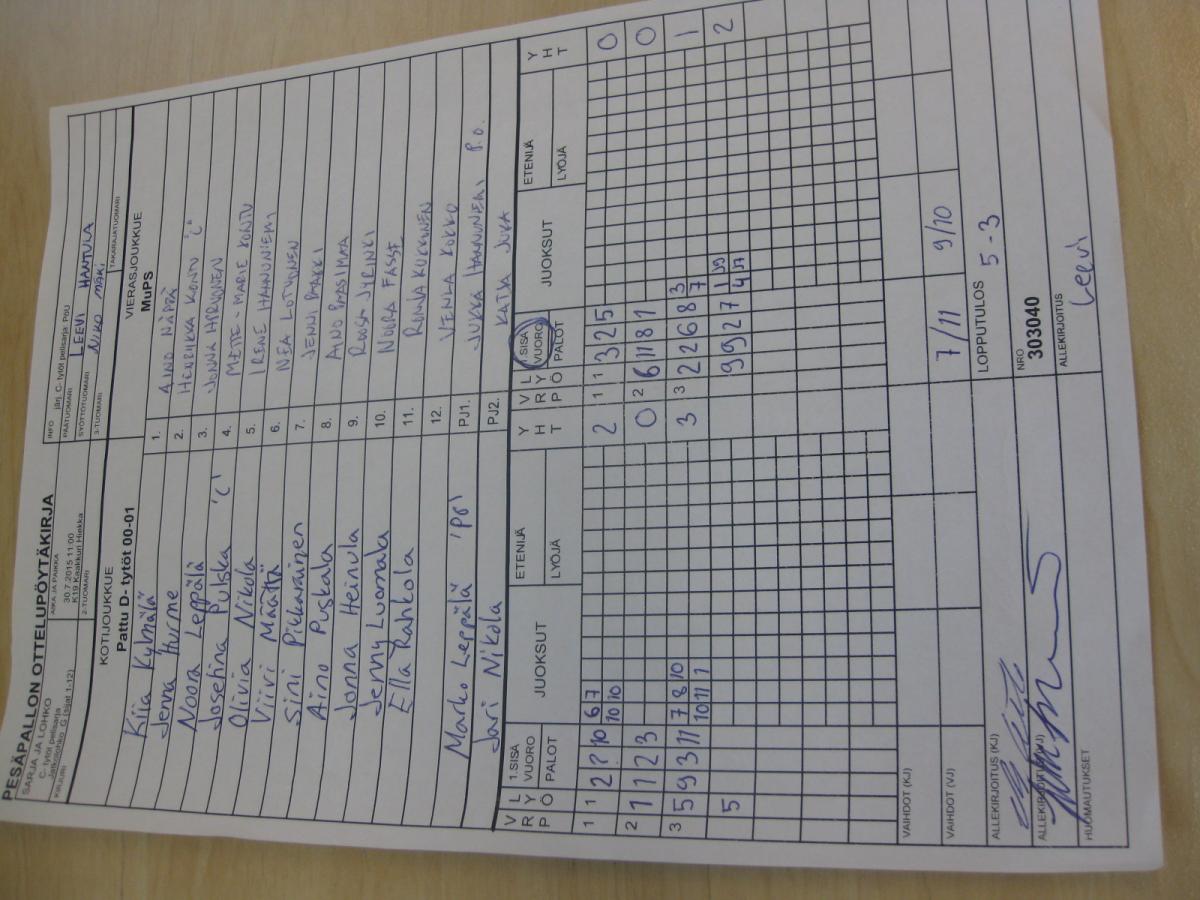 PESÄPALLON OTTELUPÖYTÄKIRJA
SARJA JA LOHKO
C- tytöt pelisarja
Jatkolohko G (sijat 1-12)
KIRJURI
AIKA JA PAIKKA
30.7.2015 11:00
K19 Kaakkuri Hiekka
2-TUOMARI
INFO järj. C- tytöt pelisarja PoU
PÄÄTUOMARI
SYÖTTÖTUOMARI LEEVI HANTULA
3-TUOMARI NIKO MÄKI
TAKARAJATUOMARI
KOTIJOUKKUE
Pattu D- tytöt 00-01
VIERASJOUKKUE
MuPS
Kiia Kylmälä 1. AINO NÄPPÄ
Jenna Hurme 2. HENRIIKKA KONTU "C"
Noora Leppälä 3. JONNA HIRVONEN
Josefina Pulska 'C' 4. METTE-MARIE KONTU
Olivia Nikola 5. IRENE HANNUNIEMI
Viivi Määttä 6. NEA LOTVONEN
Sini Pikkarainen 7. JENNI
Aino Puskala 8. AINO
Jonna Heinula 9. ROOSA JYRINKI
Jenny Luomala 10. NOORA
Ella Rahkola 11. RONJA KUKKONEN
12. VENLA KOKKO
Marko Leppälä PJ1. JUKKA HANNUNIEMI P.O.
Jari Nikola PJ2. KATJA JUKA
V R P L Y Ö 1.SISÄ VUORO PALOT JUOKSUT ETENIJÄ LYÖJÄ Y H T
V R P L Y Ö 1.SISÄ VUORO PALOT JUOKSUT ETENIJÄ LYÖJÄ Y H T
1 1 2 10 6 7 2 1 1 3 2 5 0
10 10
2 1 1 2 3 0 2 6 11 8 1 0
3 5 9 3 11 7 8 10 3 3 2 2 6 8 3 1
10 11 1 7
5 9 9 2 7 2
VAIHDOT (KJ)
VAIHDOT (VJ) 7/11 9/10
ALLEKIRJOITUS (KJ)
LOPPUTULOS 5 - 3
ALLEKIRJOITUS (VJ)
NRO
303040
HUOMAUTUKSET
ALLEKIRJOITUS
Leevi